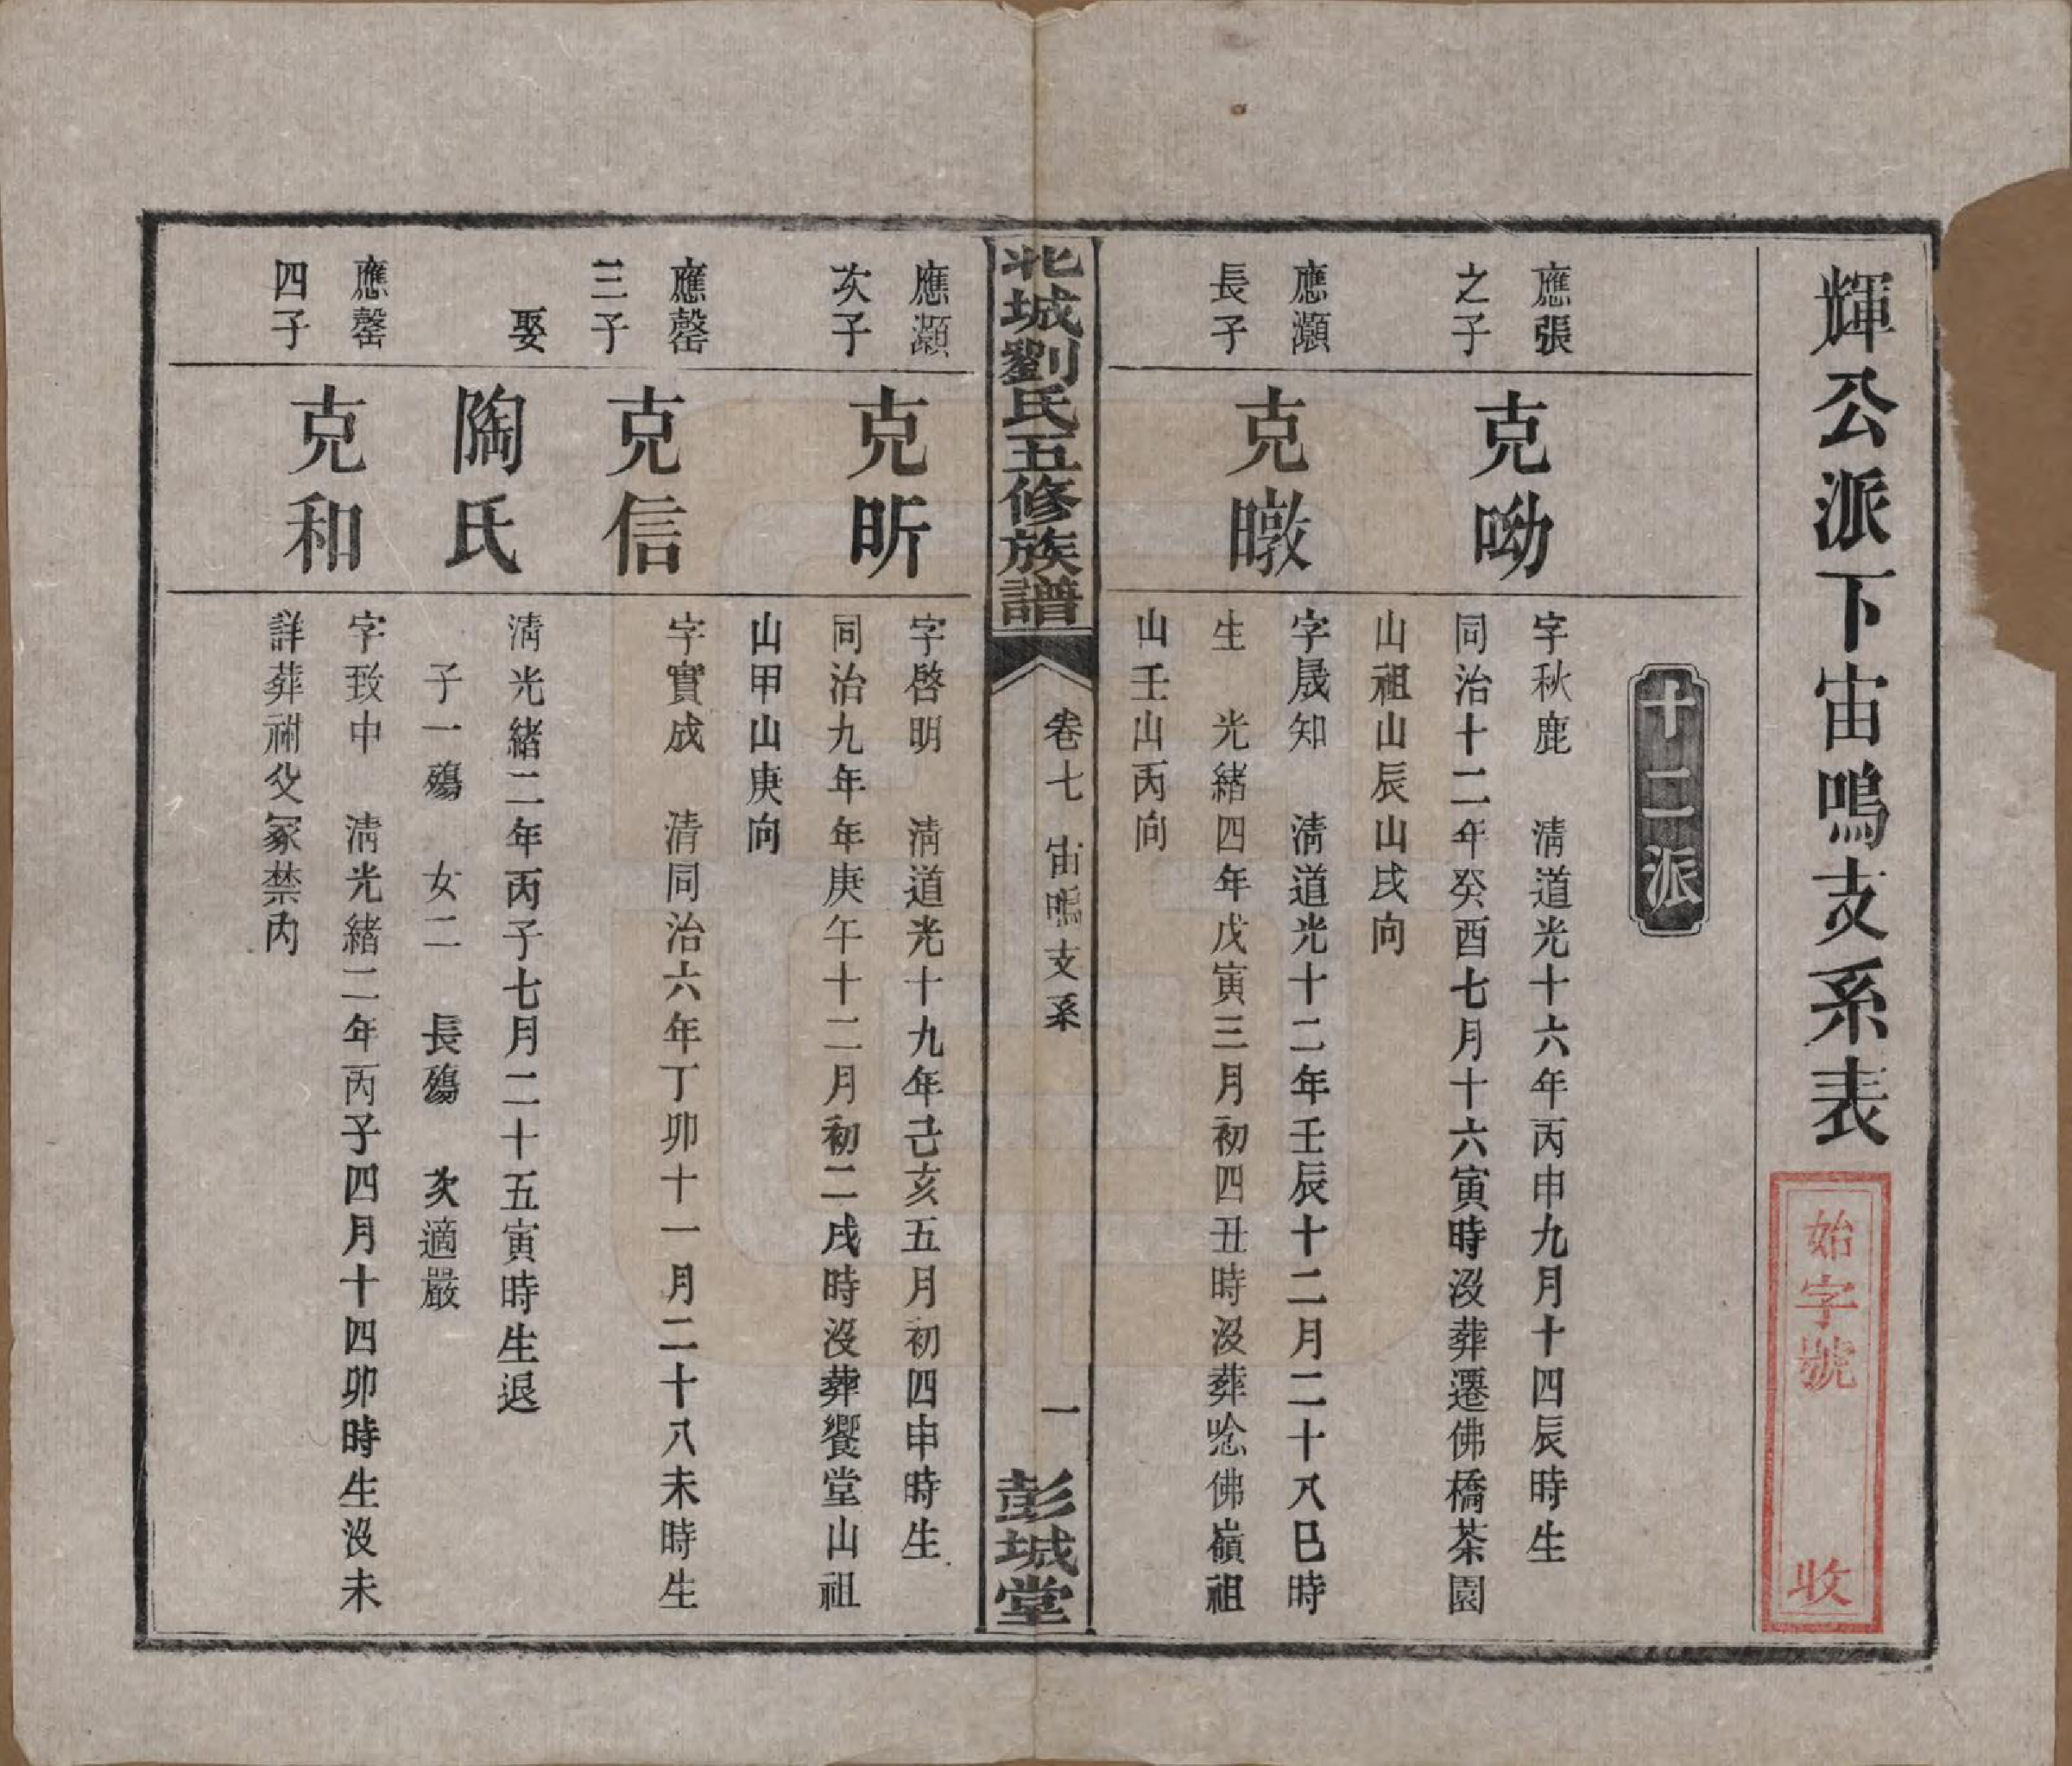 輝公派下宙鳴支系表
始字號 收
十二派
應張
之子
克呦
字秋鹿 淸道光十六年丙申九月十四辰時生
同治十二年癸酉七月十六寅時沒葬遷佛橋茶園
山祖山辰山戌向
應灝
長子
克暾
字晟知 淸道光十二年壬辰十二月二十八巳時
生 光緒四年戊寅三月初四丑時沒葬唸佛嶺祖
山壬山丙向
北城劉氏五修族譜
卷七 宙鳴支系
一
彭城堂
應灝
次子
克昕
字啓明 淸道光十九年己亥五月初四申時生
同治九年年庚午十二月初二戌時沒葬饗堂山祖
山甲山庚向
應罄
三子
克信
字實成 清同治六年丁卯十一月二十八未時生
娶
陶氏
淸光緒二年丙子七月二十五寅時生退
子一殤 女二 長殤 次適嚴
應罄
四子
克和
字致中 淸光緒二年丙子四月十四卯時生沒未
詳葬祔父冢禁內